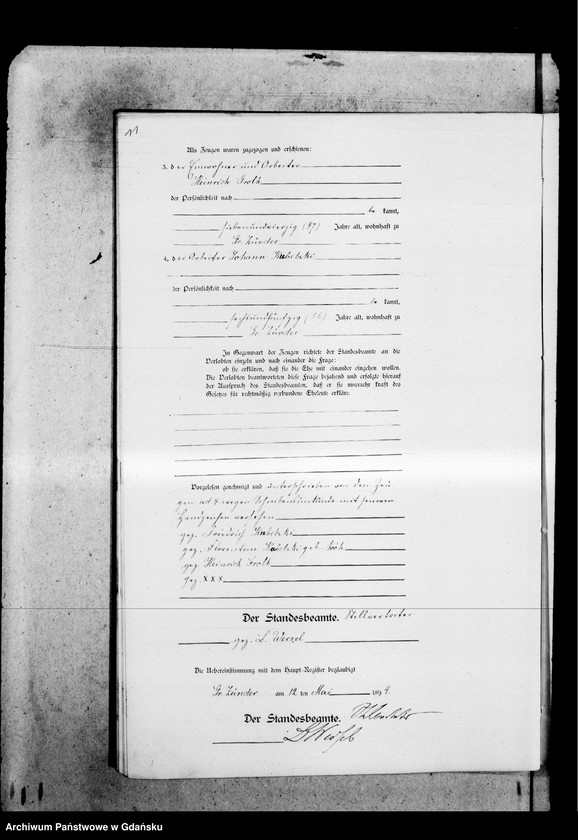 11
Als Zeugen waren zugezogen und erschienen:
3. der Einwohner und Arbeiter
Heinrich Groth
der Persönlichkeit nach
be kannt,
siebenundvierzig (47) Jahre alt, wohnhaft zu
Gr. Zünder
4. der Arbeiter Johann
der Persönlichkeit nach
be kannt,
sechsundfünfzig (56) Jahre alt, wohnhaft zu
Gr. Zünder
In Gegenwart der Zeugen richtete der Standesbeamte an die
Verlobten einzeln und nach einander die Frage:
ob sie erklären, daß sie die Ehe mit einander eingehen wollen.
Die Verlobten beantworteten diese Frage bejahend und erfolgte hierauf
der Ausspruch des Standesbeamten, daß er sie nunmehr kraft des
Gesetzes für rechtmäßig verbundene Eheleute erkläre.
Vorgelesen, genehmigt und unterschrieben von den Zeu-
gen ad 4 wegen Schreibensunkunde mit seinem
Handzeichen versehen
gez. Friedrich
gez. Florentine geb.
gez. Heinrich Groth
gez. X X X
Der Standesbeamte. Stellvertreter
gez. L. Wessel
Die Uebereinstimmung mit dem Haupt-Register beglaubigt
Gr. Zünder am 12 ten Mai 1894.
Der Standesbeamte.
L. Wessel
Archiwum Państwowe w Gdańsku